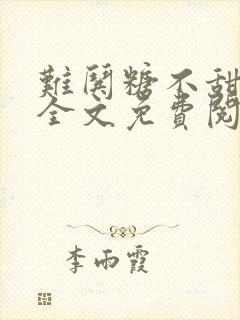 難鬨糖不甜
全文免費閱
李雨霞